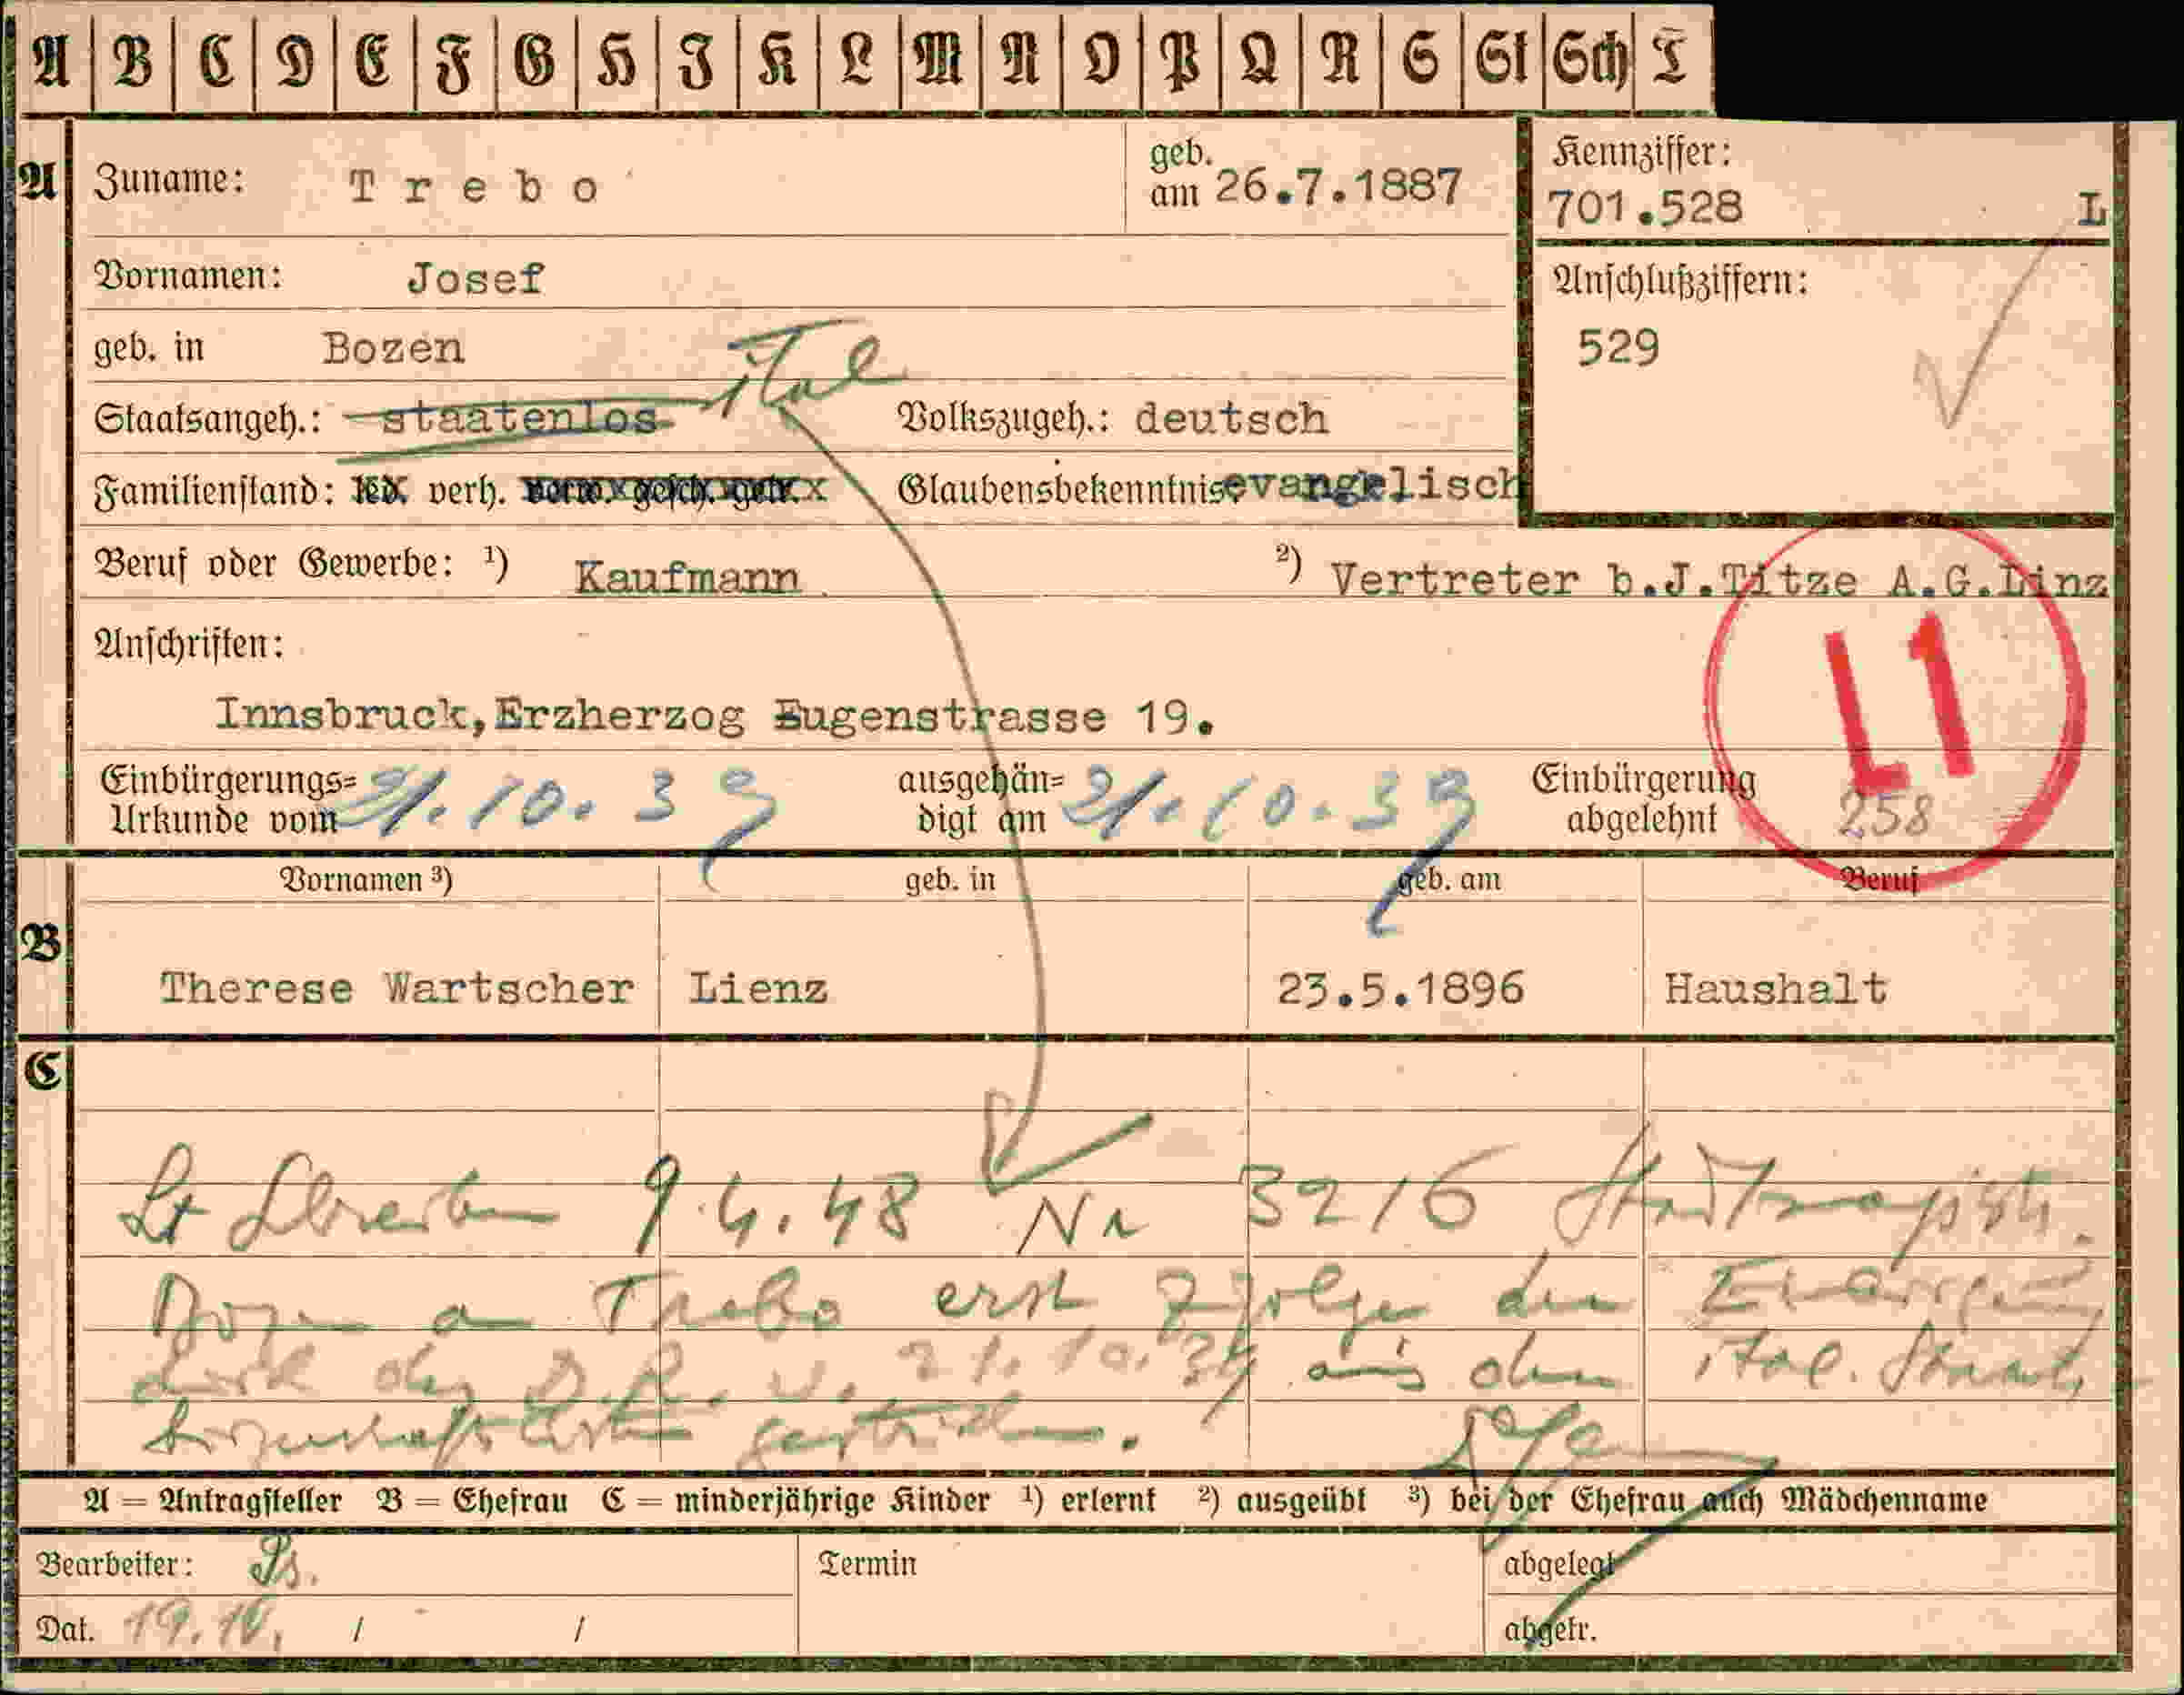 A B C D E F G H J K L M N O P Q R S St Sch T
A Zuname: Trebo geb. am 26.7.1887
Kennziffer: 701.528 L
Vornamen: Josef
Anschlußziffern: 529
geb. in Bozen
ital
Staatsangeh.: staatenlos Volkszugeh.: deutsch
Familienstand: led. verh. verw. gesch. getr. Glaubensbekenntnis evangelisch
Beruf oder Gewerbe: ¹) Kaufmann ²) Vertreter b.J.Titze A.G.Linz
Anschriften:
L1
Innsbruck, Erzherzog Eugenstrasse 19.
Einbürgerungs= Urkunde vom 21.10.39 ausgehän= digt am 21.10.39 Einbürgerung abgelehnt 258
Vornamen ³) geb. in geb. am Beruf
B
Therese Wartscher Lienz 23.5.1896 Haushalt
C
Lt Schreiben 9.4.48 Nr 3216 Stadtmagistr.
Bozen a Trebo erst zufolge der
durch das D.R. v. 21.10.39 aus den ital. Staats
bürgerschaftslisten gestrichen.
A = Antragsteller B = Ehefrau C = minderjährige Kinder ¹) erlernt ²) ausgeübt ³) bei der Ehefrau auch Mädchenname
Bearbeiter: Termin abgelegt
Dat. 19.10. / / abgetr.